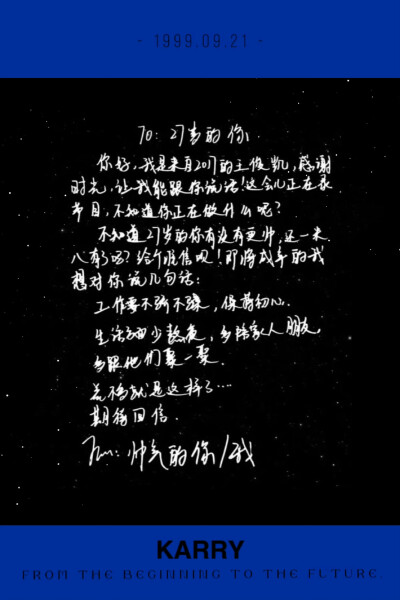 - 1999.09.21 -
TO: 27岁的你
你好,我是来自2017的王俊凯,感谢
时光,让我能跟你说话!这会儿正在录
节目,不知道你正在做什么呢?
不知道27岁的你有没有更帅,还一米
八有了吗?给个准信呗!即将成年的我
想对你说几句话:
工作要不骄不躁,保持初心.
生活要少熬夜,多陪家人朋友,
多跟他们聚一聚.
差不多就是这样了…
期待回信.
From: 帅气的你/我
KARRY
FROM THE BEGINNING TO THE FLTURE.